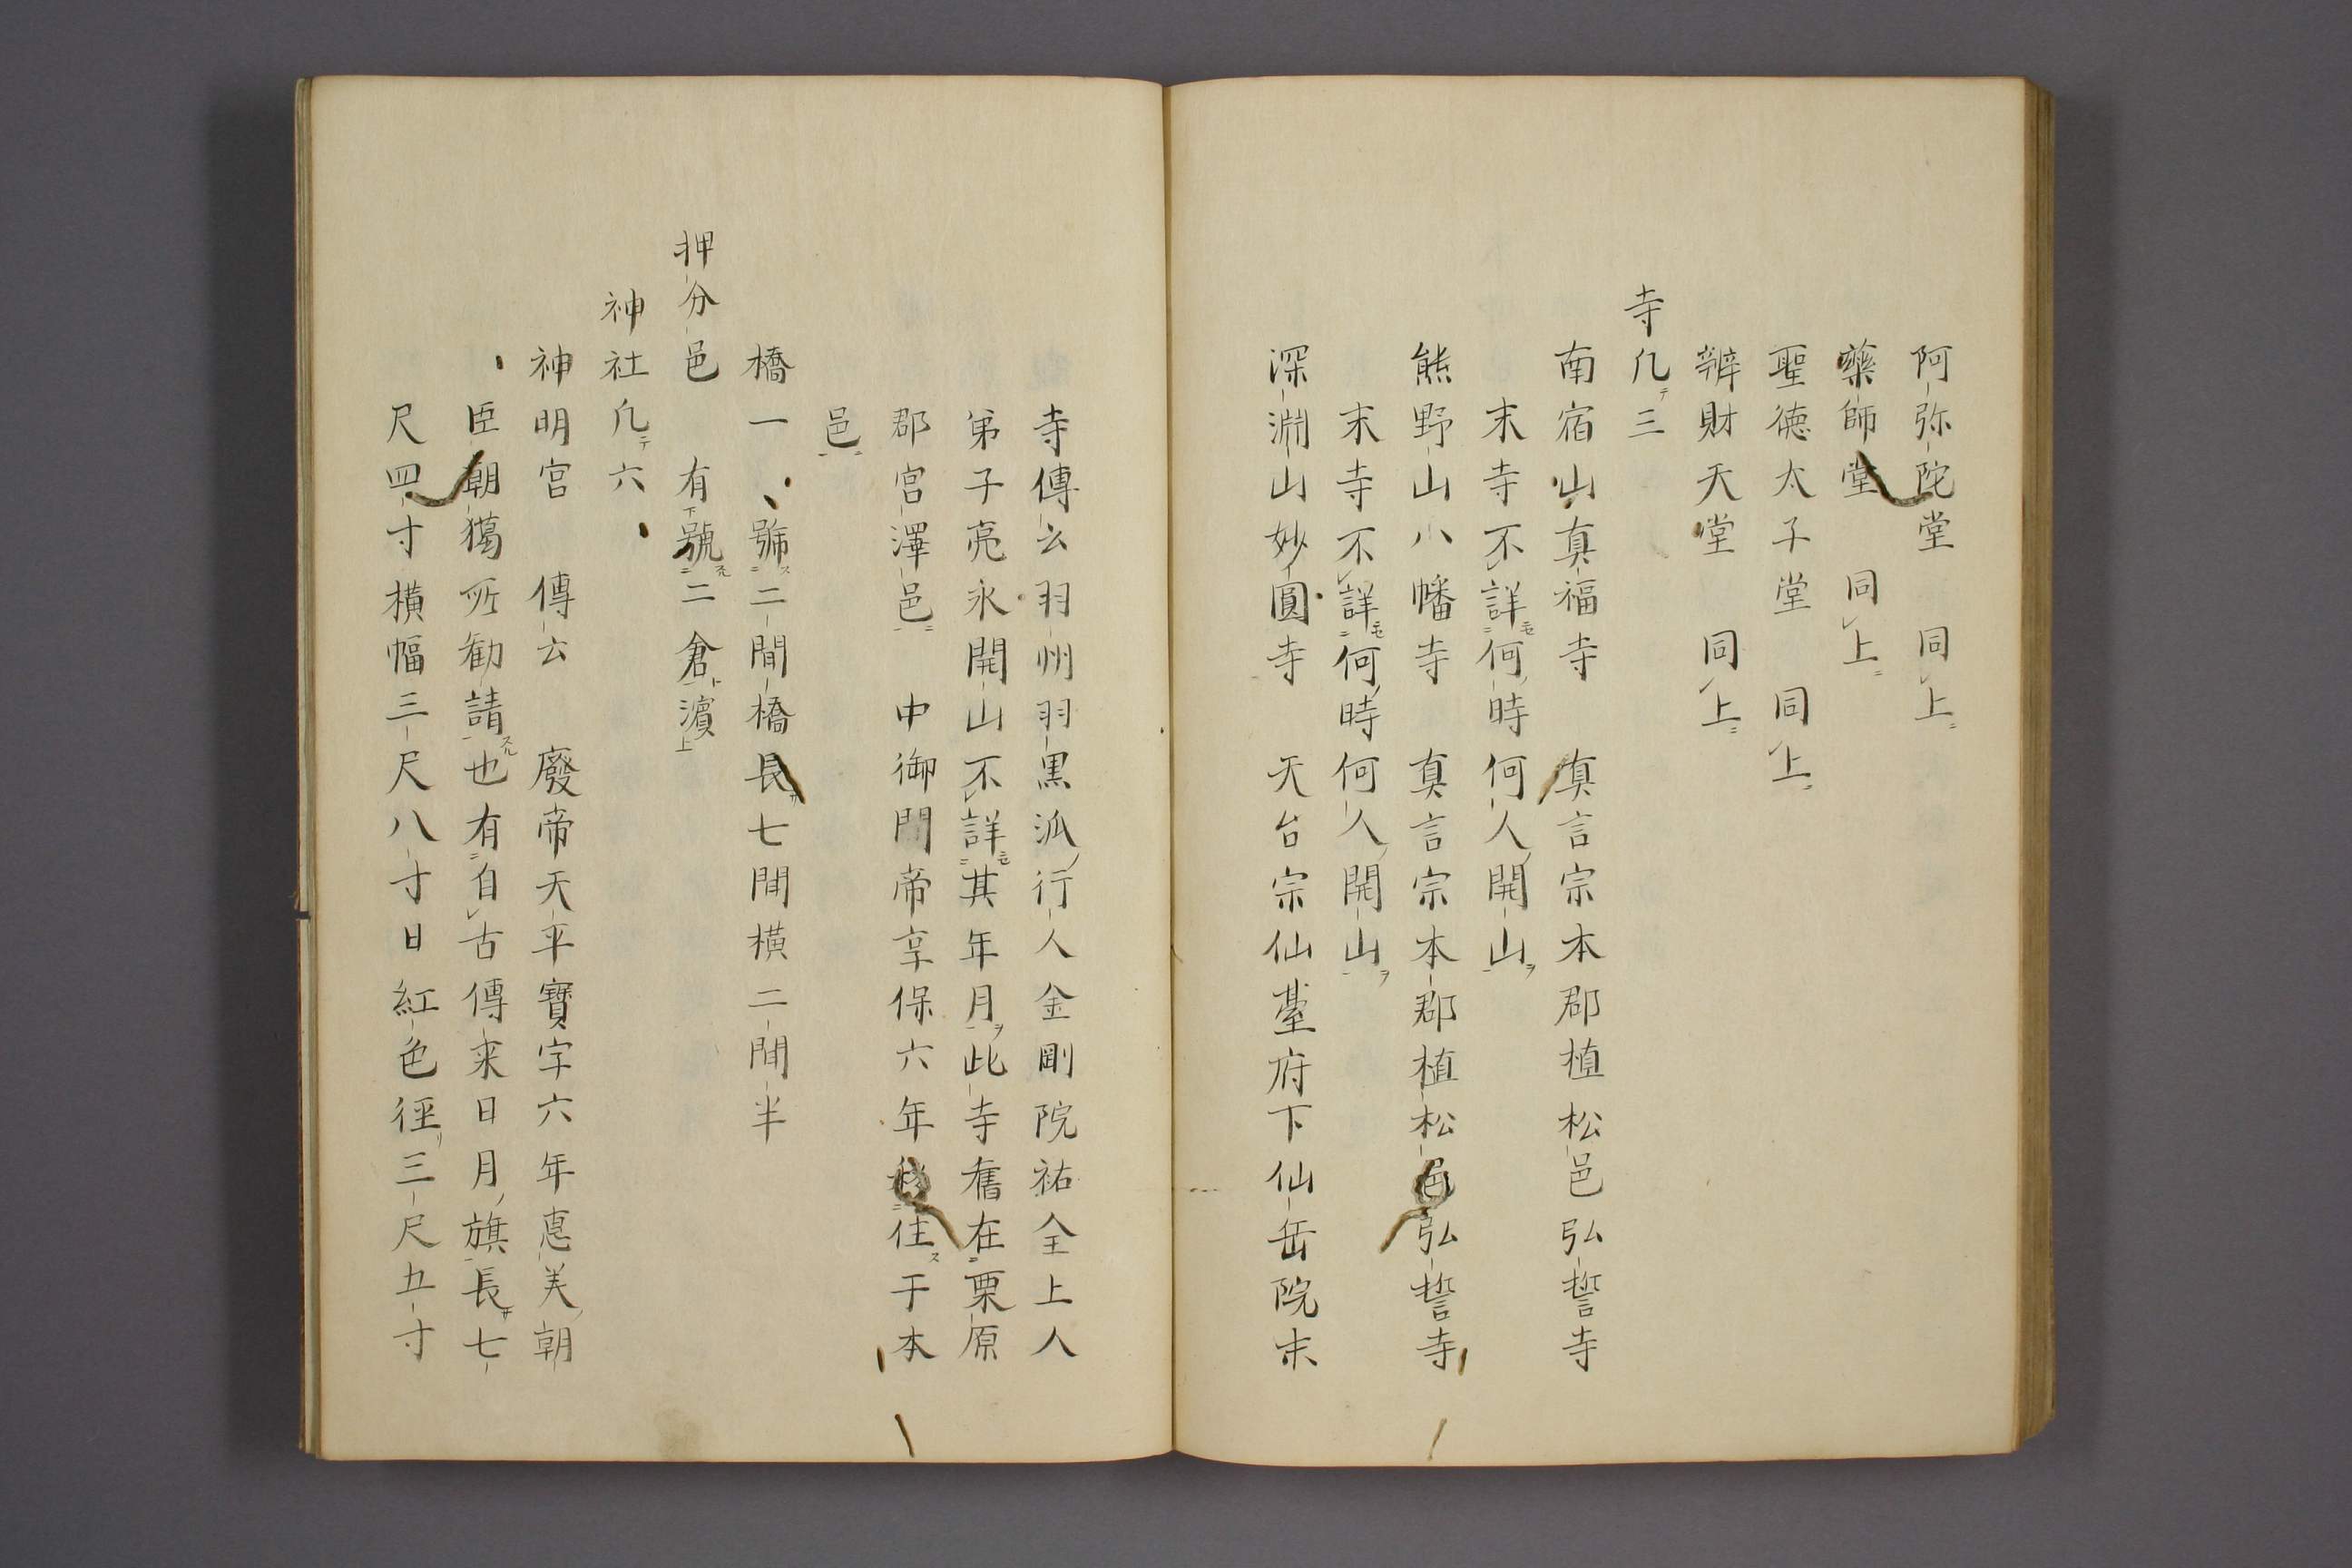 阿弥陀堂　同上
藥師堂　同上
聖徳太子堂　同上
辨財天堂　同上
寺凡三
南宿山真福寺　真言宗本郡植松邑弘誓寺
末寺不詳何時何人開山
熊野山八幡寺　真言宗本郡植松邑弘誓寺
末寺不詳何時何人開山
深淵山妙圓寺　天台宗仙臺府下仙岳院末
寺傳云羽州羽黒派行人金剛院祐全上人
弟子亮永開山不詳其年月此寺舊在栗原
郡宮澤邑　中御門帝享保六年移住于本
邑
橋一　號二間橋長七間横二間半
押分邑　有號二倉濵
神社凡六
神明宮　傳云　廢帝天平寶字六年惠美朝
臣朝獦所勧請也有自古傳来日月旗長七
尺四寸横幅三尺八寸日紅色徑三尺五寸